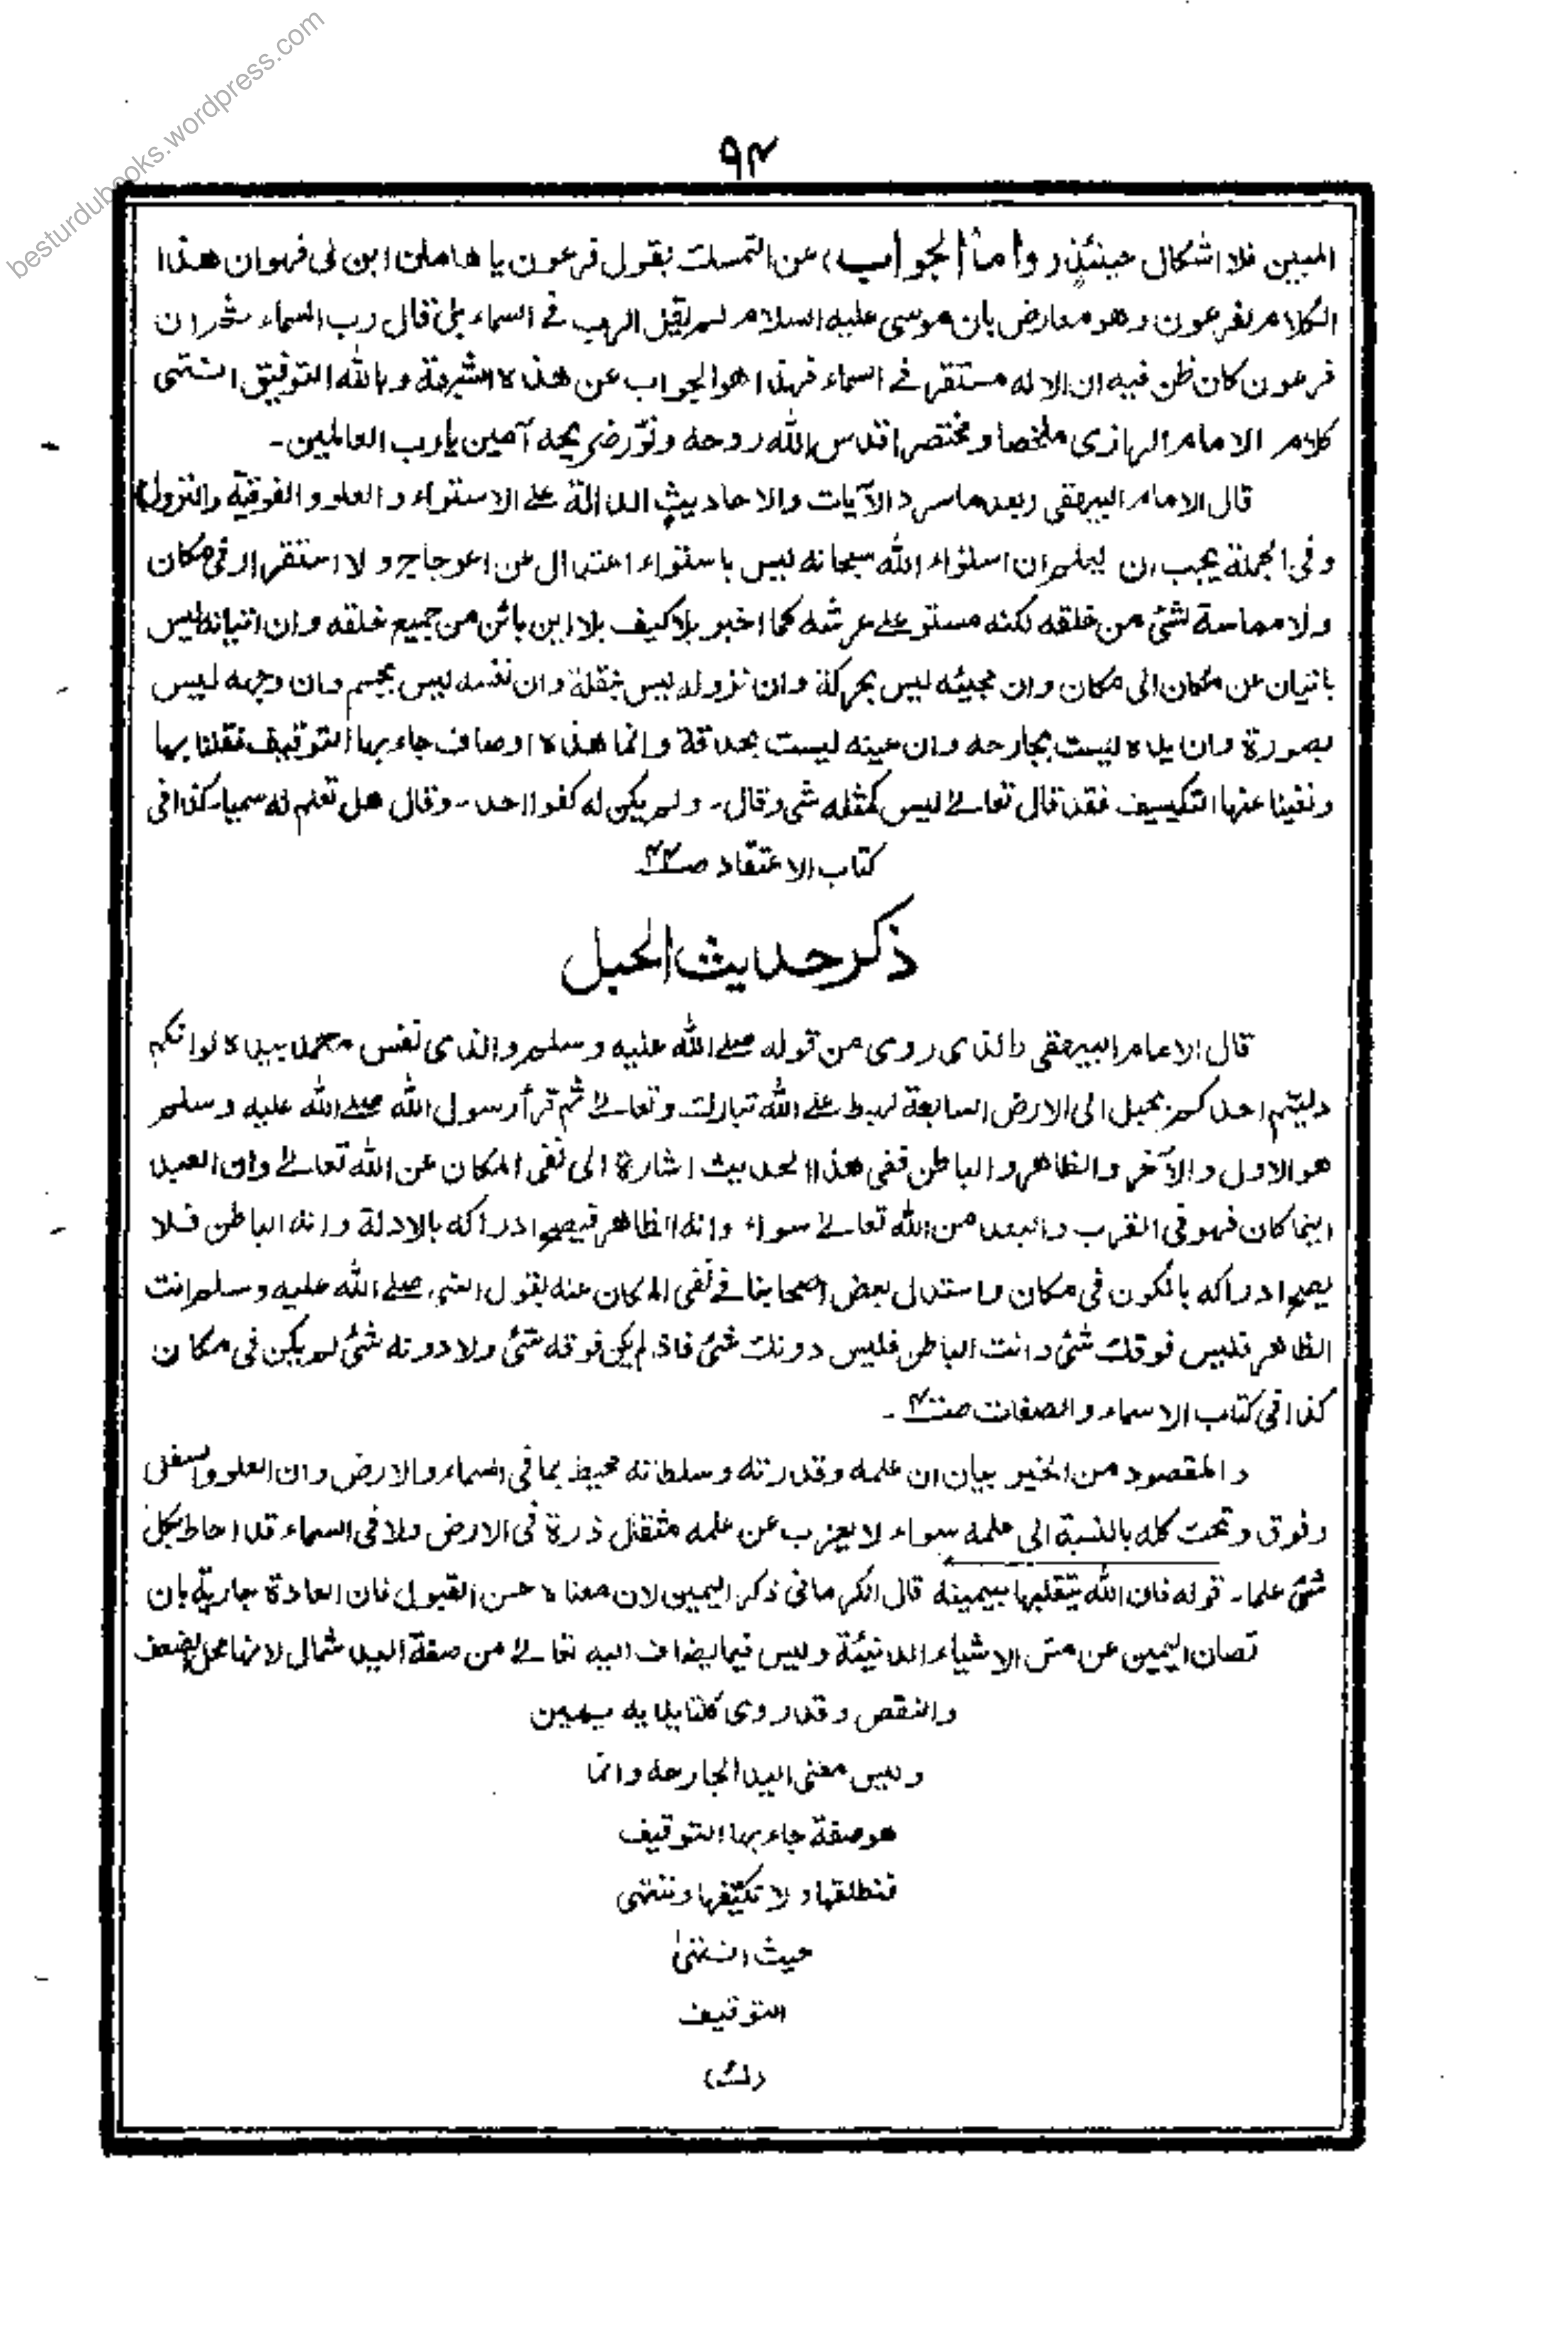 besturdubooks.wordpress.com
۹۴
المبين فلا اشكال حينئذ (وأما الجواب) عن التمسك بقول فرعون يا هامان ابن لى فهو ان هذا
الكلام لفرعون وهو معارض بان موسى عليه السلام لم يقل الرب فى السماء بل قال رب السماء ثم ان
فرعون كان ظن فيه ان الاله مستقر فى السماء فهذا هو الجواب عن هذه الشبهة وبالله التوفيق انتهى
كلام الامام الرازى ملخصا ومختصرا قدس الله روحه ونوّر ضريحه آمين يا رب العالمين۔
قال الامام البيهقى (بعد ما سرد الآيات والاحاديث الدالة على الاستواء والعلو والفوقية والنزول)
وفى الجملة يجب ان ليعلم ان استواء الله سبحانه ليس باستواء اعتدال عن اعوجاج ولا استقرار فى مكان
ولا مماسة لشئ من خلقه لكنه مستو على عرشه كما اخبر بلا كيف بلا اين بائن من جميع خلقه وان اتيانه ليس
باتيان من مكان الى مكان وان مجيئه ليس بحركة وان نزوله ليس بنقلة وان نفسه ليس بجسم وان وجهه ليس
بصورة وان يده ليست بجارحه وان عينه ليست بحدقة وانما هذه اوصاف جاء بها التوقيف فقلنا بها
ونفينا عنها التكييف فقد قال تعالى ليس كمثله شى وقال۔ ولم يكن له كفوا احد۔ وقال هل تعلم له سميا۔ كذا فى
كتاب الاعتقاد صـ۴۴
ذكر حديث الحبل
قال الامام البيهقى والذى روى من قوله صلى الله عليه وسلم والذى نفس محمد بيده لو انكم
دليتم احدكم بحبل الى الارض السابعة لهبط على الله تبارك وتعالى ثم قرأ رسول الله صلى الله عليه وسلم
هو الاول والآخر والظاهر والباطن ففى هذا الحديث اشارة الى نفى المكان عن الله تعالى وان العبد
اينما كان فهو فى القرب والبعد من الله تعالى سواء وانه الظاهر فيصح ادراكه بالادلة وانه الباطن فلا
يصح ادراكه بالكون فى مكان واستدل بعض اصحابنا فى نفى المكان عنه بقول النبى صلى الله عليه وسلم انت
الظاهر فليس فوقك شئ وانت الباطن فليس دونك شئ فاذا لم يكن فوقه شئ ولا دونه شئ لم يكن فى مكان
كذا فى كتاب الاسماء والصفات صـ۴۰۰۔
والمقصود من الخبر بيان ان علمه وقدرته وسلطانه محيط بما فى السماء والارض وان العلو والسفل
وفوق وتحت كله بالنسبة الى علمه سواء لا يعزب عن علمه مثقال ذرة فى الارض ولا فى السماء قد احاط بكل
شئ علما۔ قوله فان الله يتقبلها بيمينه قال الكرمانى ذكر اليمين لان معناه حسن القبول فان العادة جارية بان
تصان اليمين عن مس الاشياء الدنيئة وليس فيما يضاف اليه تعالى من صفة اليد شمال لانها محل الضعف
والنقص وقد روى كلتا يديه يمين
وليس معنى اليد الجارحة وانما
هو صفة جاء بها التوقيف
فنطلقها ولا نكيّفها وننتهى
حيث انتهىٰ
التوقيف